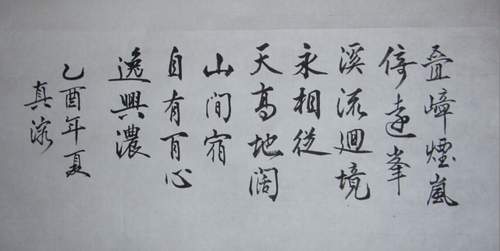 叠嶂煙嵐
倚遠峯
溪流迴境
永相從
天高地闊
山間宿
自有閒心
逸興濃
乙酉年夏
真